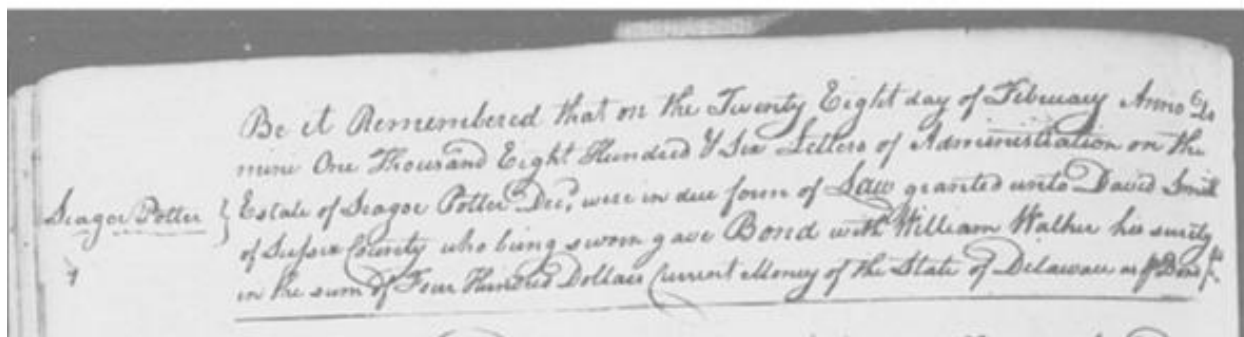 Be it Remembered that on the Twenty Eight day of February Anno Do
mini One Thousand Eight Hundred & Six Letters of Administration on the
Seagoe Potter } Estate of Seagoe Potter Decd. were in due form of Law granted unto David Smith
of Sussex County who being sworn gave Bond with William Walker his surety
in the sum of Four Hundred Dollars Current Money of the State of Delaware as p Bond